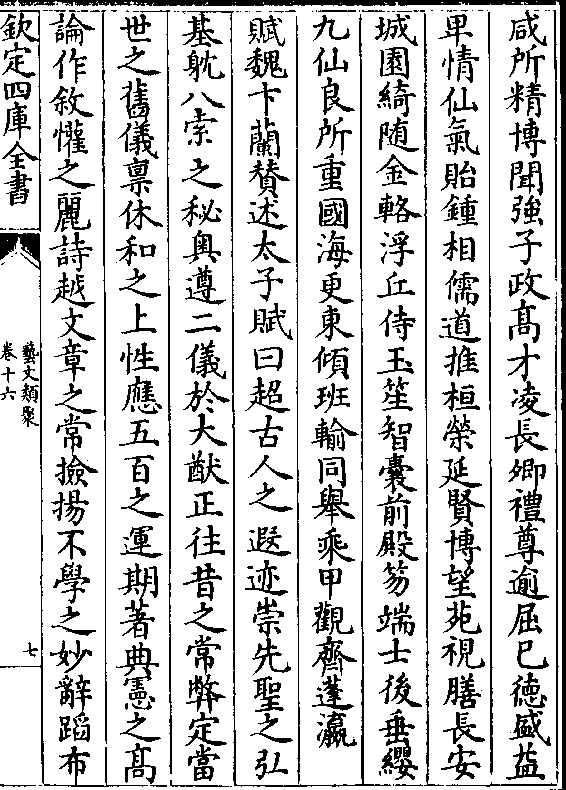 咸所精博聞強子政髙才凌長卿禮尊逾屈已徳盛益
卑情仙氣貽鍾相儒道推桓榮延賢博望苑視膳長安
城園綺随金輅浮丘侍玉笙智囊前殿笏端士後垂纓
九仙良所重國海更東傾班輸同舉乘甲觀齊蓬瀛
賦魏卞蘭賛述太子賦曰超古人之遐迹崇先聖之弘
基躭八索之秘奥遵二儀於大猷正往昔之常弊定當
世之舊儀禀休和之上性應五百之運期著典憲之髙
論作敘懽之麗詩越文章之常撿揚不學之妙辭蹈布
欽定四庫全書
藝文類聚
卷十六
七